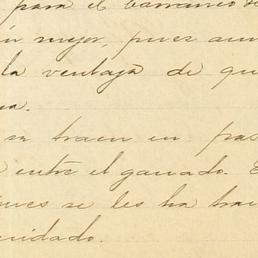 para el barranco
mejor, pues aun
la ventaja de qu
sa.
se traen en pas
entre el ganado. E
nes se les ha trai
cuidado.